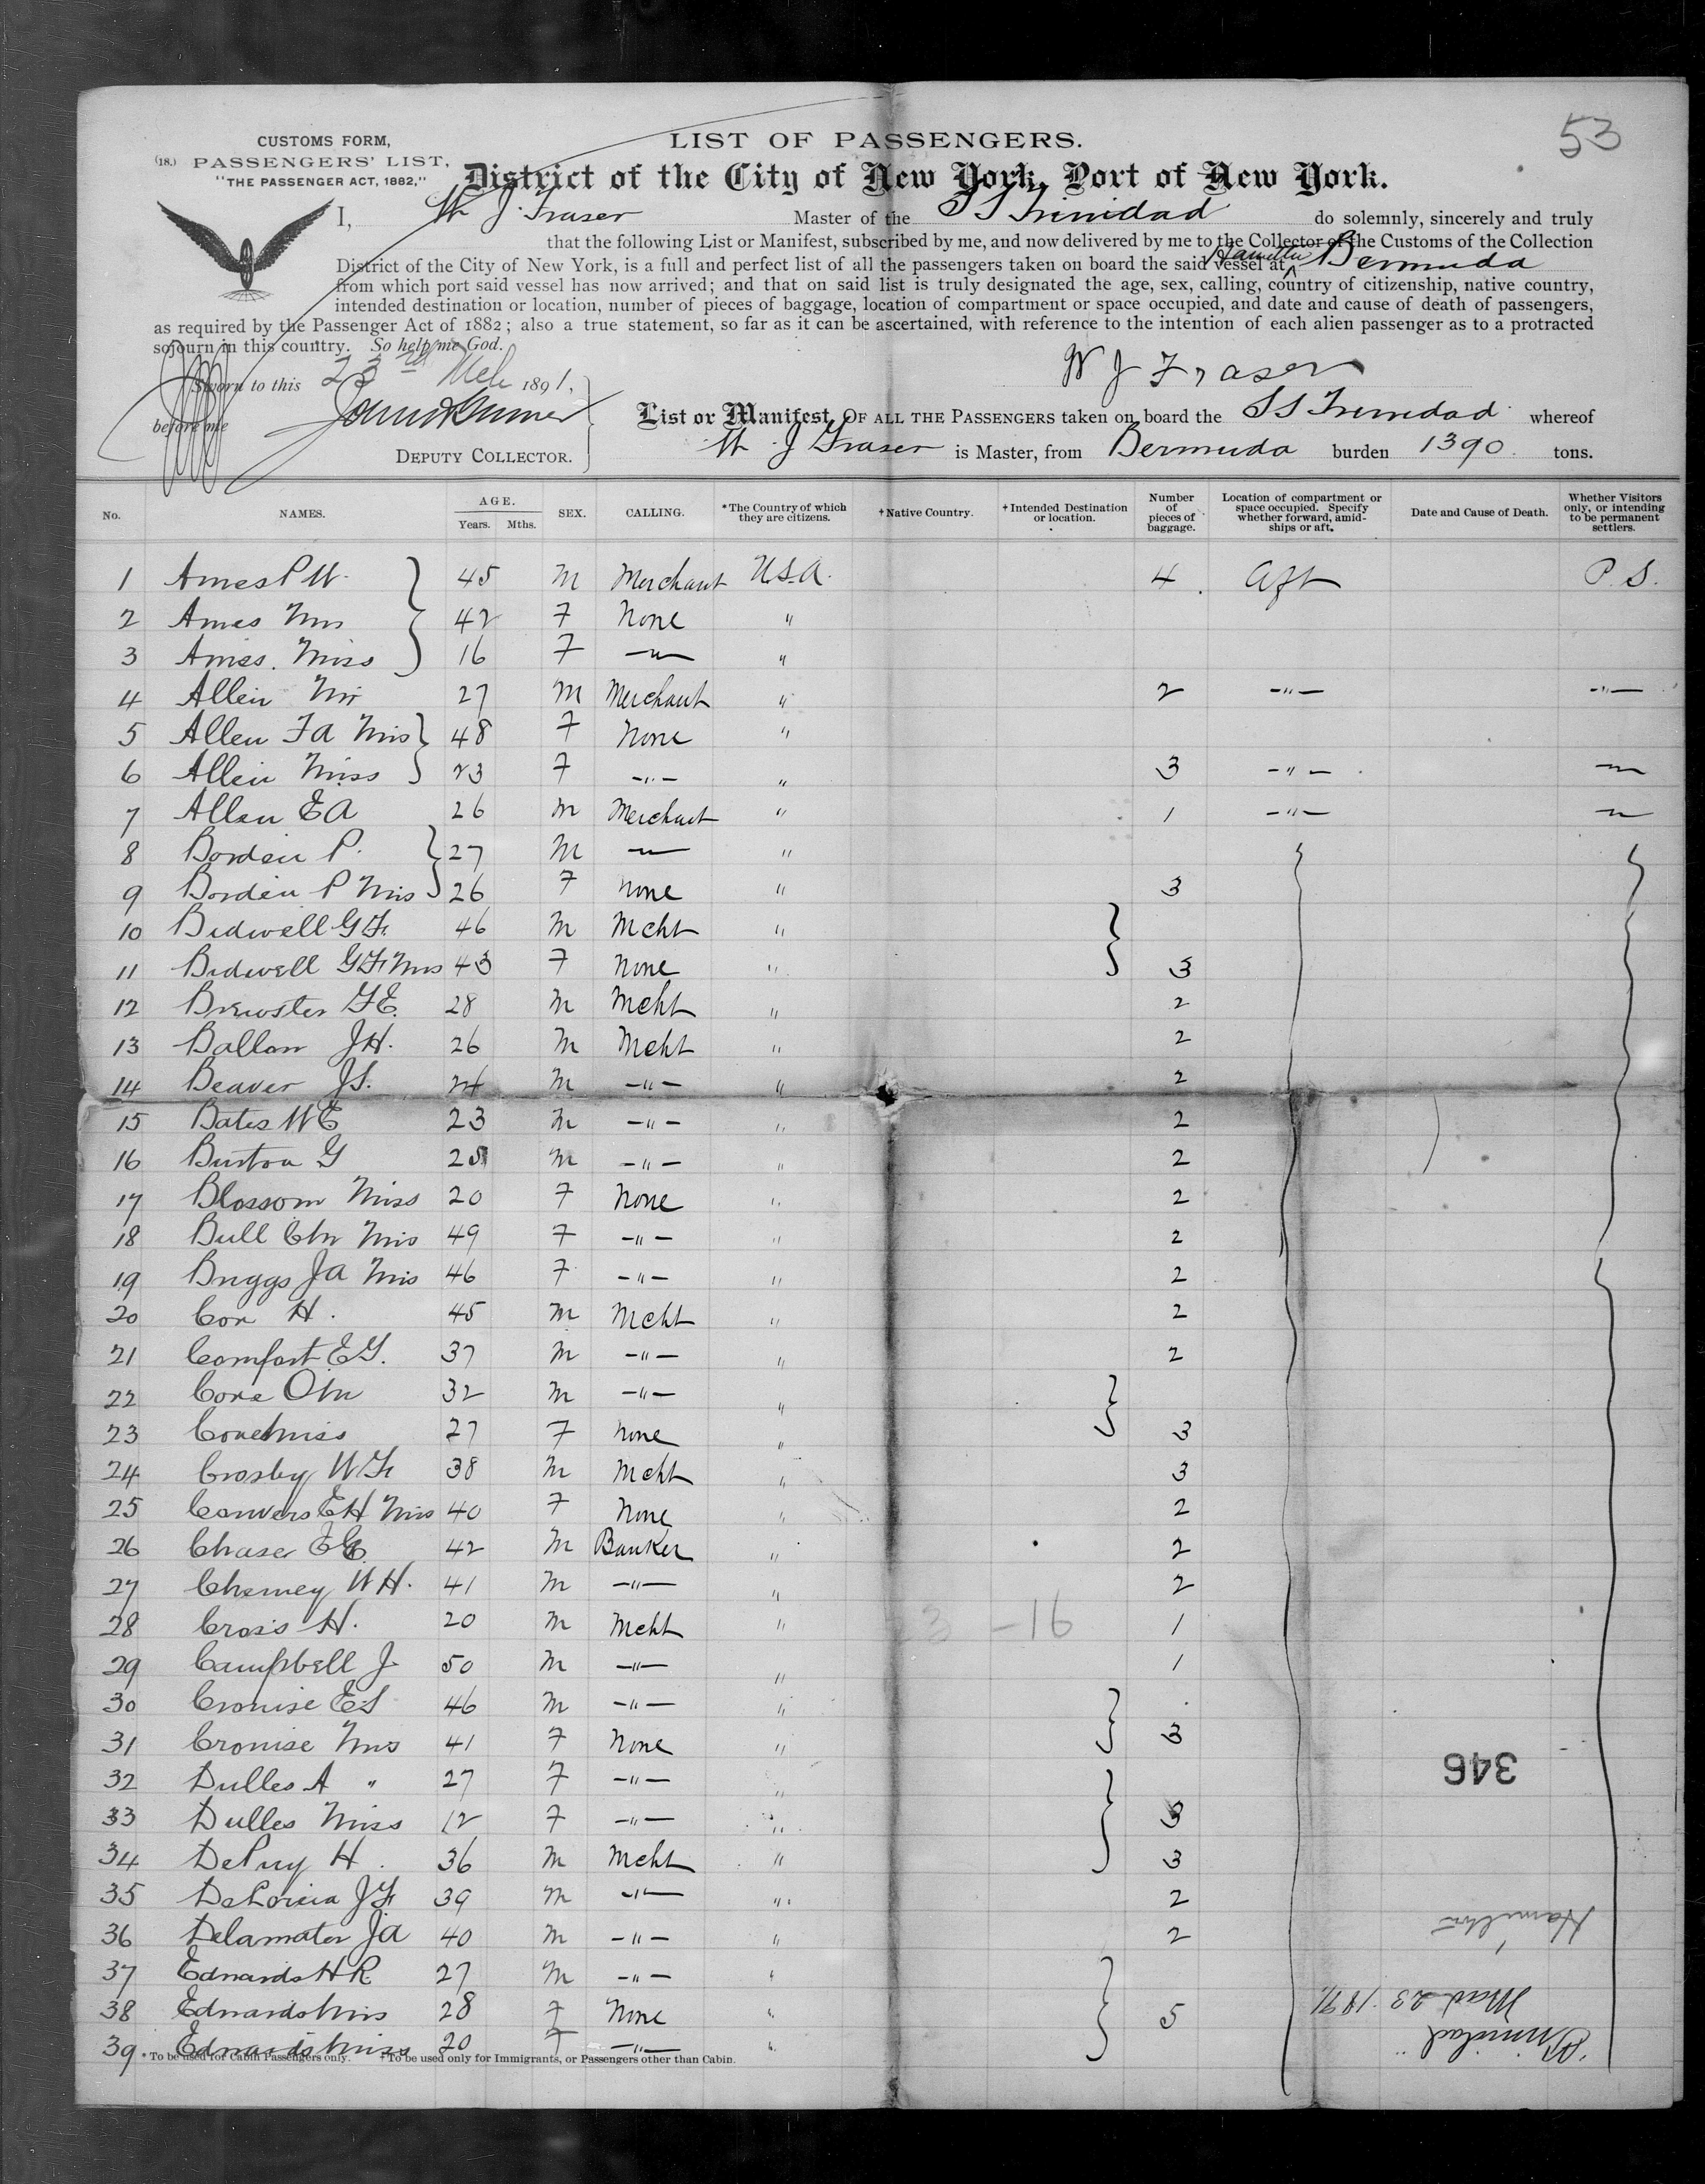 53
CUSTOMS FORM,
(18.) PASSENGERS' LIST,
"THE PASSENGER ACT, 1882,"
LIST OF PASSENGERS.
District of the City of New York, Port of New York.
I, W J Fraser Master of the SS Trinidad do solemnly, sincerely and truly
that the following List or Manifest, subscribed by me, and now delivered by me to the Collector of the Customs of the Collection
District of the City of New York, is a full and perfect list of all the passengers taken on board the said vessel at Hamilton Bermuda
from which port said vessel has now arrived; and that on said list is truly designated the age, sex, calling, country of citizenship, native country,
intended destination or location, number of pieces of baggage, location of compartment or space occupied, and date and cause of death of passengers,
as required by the Passenger Act of 1882; also a true statement, so far as it can be ascertained, with reference to the intention of each alien passenger as to a protracted
sojourn in this country. So help me God.
Sworn to this 23rd Mch 1891,
W J Fraser
before me
List or Manifest, OF ALL THE PASSENGERS taken on board the SS Trinidad whereof
DEPUTY COLLECTOR.
W J Fraser is Master, from Bermuda burden 1390 tons.
No. NAMES. AGE. Years. Mths. SEX. CALLING. *The Country of which they are citizens. †Native Country. †Intended Destination or location. Number of pieces of baggage. Location of compartment or space occupied. Specify whether forward, amidships or aft. Date and Cause of Death. Whether Visitors only, or intending to be permanent settlers.
1 Ames P W. 45 M Merchant U.S.A. 4 Aft P. S.
2 Ames Mrs 42 F None "
3 Ames. Miss 16 F —"— "
4 Allen Mr 27 M Merchant " 2 —"— —"—
5 Allen F A Mrs 48 F None "
6 Allen Miss 23 F —"— " 3 —"— —"—
7 Allen E A 26 M Merchant " 1 —"— —"—
8 Borden P. 27 M —"— "
9 Borden P Mrs 26 F none " 3
10 Bidwell G F. 46 M Mcht "
11 Bidwell G F. Mrs 43 F none " 3
12 Brewster G E. 28 M Mcht " 2
13 Ballon J H. 26 M Mcht " 2
14 Beaver J S. 24 M —"— " 2
15 Bates W E 23 M —"— " 2
16 Burton G 25 M —"— " 2
17 Blossom Miss 20 F None " 2
18 Bull Chr Mrs 49 F —"— " 2
19 Briggs J A Mrs 46 F —"— " 2
20 Cox H. 45 M Mcht " 2
21 Comfort E G. 37 M —"— " 2
22 Cone 32 M —"— "
23 Cone 27 F none " 3
24 Crosby W F. 38 M Mcht " 3
25 Convers E H Mrs 40 F None " 2
26 Chase E 42 M Banker " 2
27 W H. 41 M —"— " 2
28 Cross H. 20 M Mcht " 3 -16 1
29 Campbell J 50 M —"— " 1
30 Cronise E S 46 M —"— "
31 Cronise Mrs 41 F None " 3
32 Dulles A " 27 F —"— "
33 Dulles Miss 12 F —"— " 3
34 DePuy H. 36 M Mcht " 3
35 J F. 39 M —"— " 2
36 Delamater J A 40 M —"— " 2
37 Edwards H R 27 M —"— "
38 Edwards Mrs 28 F None " 5
39 Edwards Miss 20 F —"— "
* To be used for Cabin Passengers only. † To be used only for Immigrants, or Passengers other than Cabin.
346
Hamilton
"Trinidad"
Mar 23 1891